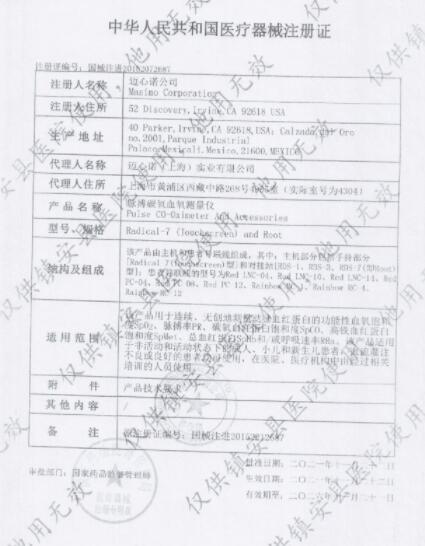 中华人民共和国医疗器械注册证
注册证编号：国械注进20152072687
注册人名称 迈心诺公司
Masimo Corporation
注册人住所 52 Discovery, Irvine, CA 92618 USA
生产地址 40 Parker, Irvine, CA 92618, USA; Calzada del Oro
no.2001, Parque Industrial
Palaco, Mexicali, Mexico, 21600, MEXICO
代理人名称 迈心诺（上海）实业有限公司
代理人住所 上海市黄浦区西藏中路268号 （实际室号为4304）
产品名称 脉搏碳氧血氧测量仪
Pulse CO-Oximeter And Accessories
型号、规格 Radical-7 (Touchscreen) and Root
结构及组成 该产品由主机和患者导联线组成，其中，主机部分包括手持部分
[Radical 7 (Touchscreen)型]和对接站[RDS-1, RDS-3,
型]；患者导联线的型号为Red LNC-04, Red LNC-10, Red LNC-14, Red
PC-04, Red PC 08, Red PC 12, Rainbow RC 1, Rainbow RC 4,
Rainbow RC 12
适用范围 该产品用于连续、无创地监测动脉血红蛋白的功能性血氧饱和
度SpO2、脉搏率PR、碳氧血红蛋白饱和度SpCO、高铁血红蛋白
饱和度SpMet、总血红蛋白SpHb和/或呼吸速率RRa。该产品适用
于非活动和活动状态下的成人、小儿和新生儿患者，
不良或良好的患者均可使用，在医院、医疗机构中由经过相关
培训的人员使用。
附件 产品技术要求
其他内容 /
备注 原注册证编号：国械注进20152212687
审批部门：国家药品监督管理局
批准日期：二〇二一年十一月二十二日
生效日期：二〇二一年
有效期至：二〇二六年 二十一日
仅供镇安县医院使用，他用无效